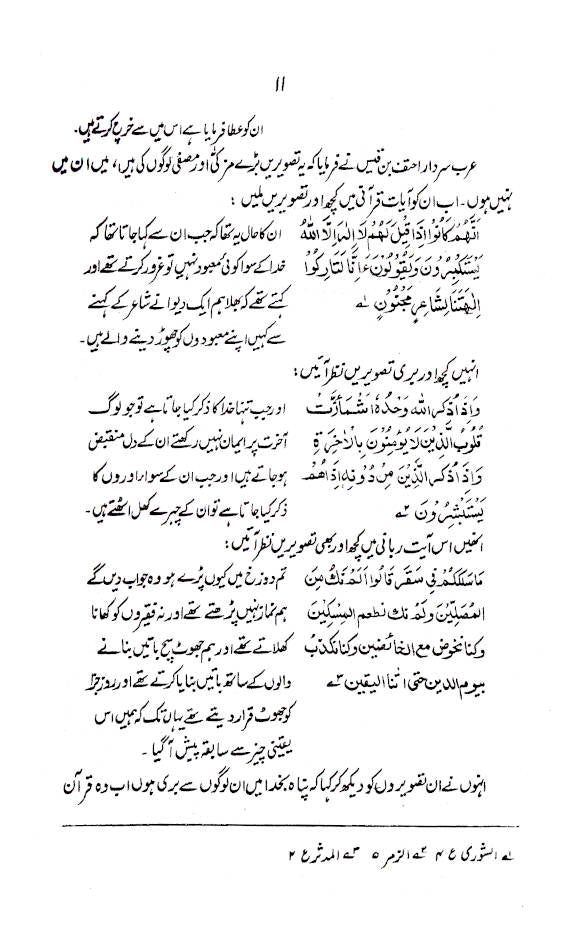 ۱۱
ان کو عطا فرمایا ہے اس میں سے خرچ کرتے ہیں۔
عرب سردار احنف بن قیس نے فرمایا کہ یہ تصویریں بڑے مزکی اور مصفی لوگوں کی ہیں، میں ان میں
نہیں ہوں۔ اب ان کو آیات قرآنی میں کچھ اور تصویریں ملیں :
اِنَّهُمْ كَانُوْا اِذَا قِيْلَ لَهُمْ لَا اِلٰهَ اِلَّا اللّٰهُ
يَسْتَكْبِرُوْنَ وَيَقُوْلُوْنَ ءَاِنَّا لَتَارِكُوْا
اٰلِهَتِنَا لِشَاعِرٍ مَّجْنُوْنٍ ۱ے
ان کا حال یہ تھا کہ جب ان سے کہا جاتا تھا کہ
خدا کے سوا کوئی معبود نہیں تو غرور کرتے تھے اور
کہتے تھے کہ بھلا ہم ایک دیوانے شاعر کے کہنے
سے کہیں اپنے معبودوں کو چھوڑ دینے والے ہیں۔
انہیں کچھ اور بری تصویریں نظر آئیں :
وَاِذَا ذُكِرَ اللّٰهُ وَحْدَهُ اشْمَأَزَّتْ
قُلُوْبُ الَّذِيْنَ لَا يُؤْمِنُوْنَ بِالْاٰخِرَةِ
وَاِذَا ذُكِرَ الَّذِيْنَ مِنْ دُوْنِهٖ اِذَا هُمْ
يَسْتَبْشِرُوْنَ ۲ے
اور جب تنہا خدا کا ذکر کیا جاتا ہے تو جو لوگ
آخرت پر ایمان نہیں رکھتے ان کے دل منقبض
ہو جاتے ہیں اور جب ان کے سوا اوروں کا
ذکر کیا جاتا ہے تو ان کے چہرے کھل اٹھتے ہیں۔
انھیں اس آیت ربانی میں کچھ اور بھی تصویریں نظر آئیں :
مَا سَلَكَكُمْ فِيْ سَقَرَ قَالُوْا لَمْ نَكُ مِنَ
الْمُصَلِّيْنَ وَلَمْ نَكُ نُطْعِمُ الْمِسْكِيْنَ
وكنا نخوض مع الخائضين وكنا نكذب
بيوم الدين حتى اتٰنا اليقين ۳ے
تم دوزخ میں کیوں پڑے ہو وہ جواب دیں گے
ہم نماز نہیں پڑھتے تھے اور نہ فقیروں کو کھانا
کھلاتے تھے اور ہم جھوٹ سچ باتیں بنانے
والوں کے ساتھ باتیں بنایا کرتے تھے اور روز جزا
کو جھوٹ قرار دیتے تھے یہاں تک کہ ہمیں اس
یقینی چیز سے سابقہ پیش آ گیا۔
انہوں نے ان تصویروں کو دیکھ کر کہا کہ پناہ بخدا میں ان لوگوں سے بری ہوں اب وہ قرآن
۱ے الشوریٰ ع ۴ ۲ے الزمر ۵ ۳ے المدثر ع ۲